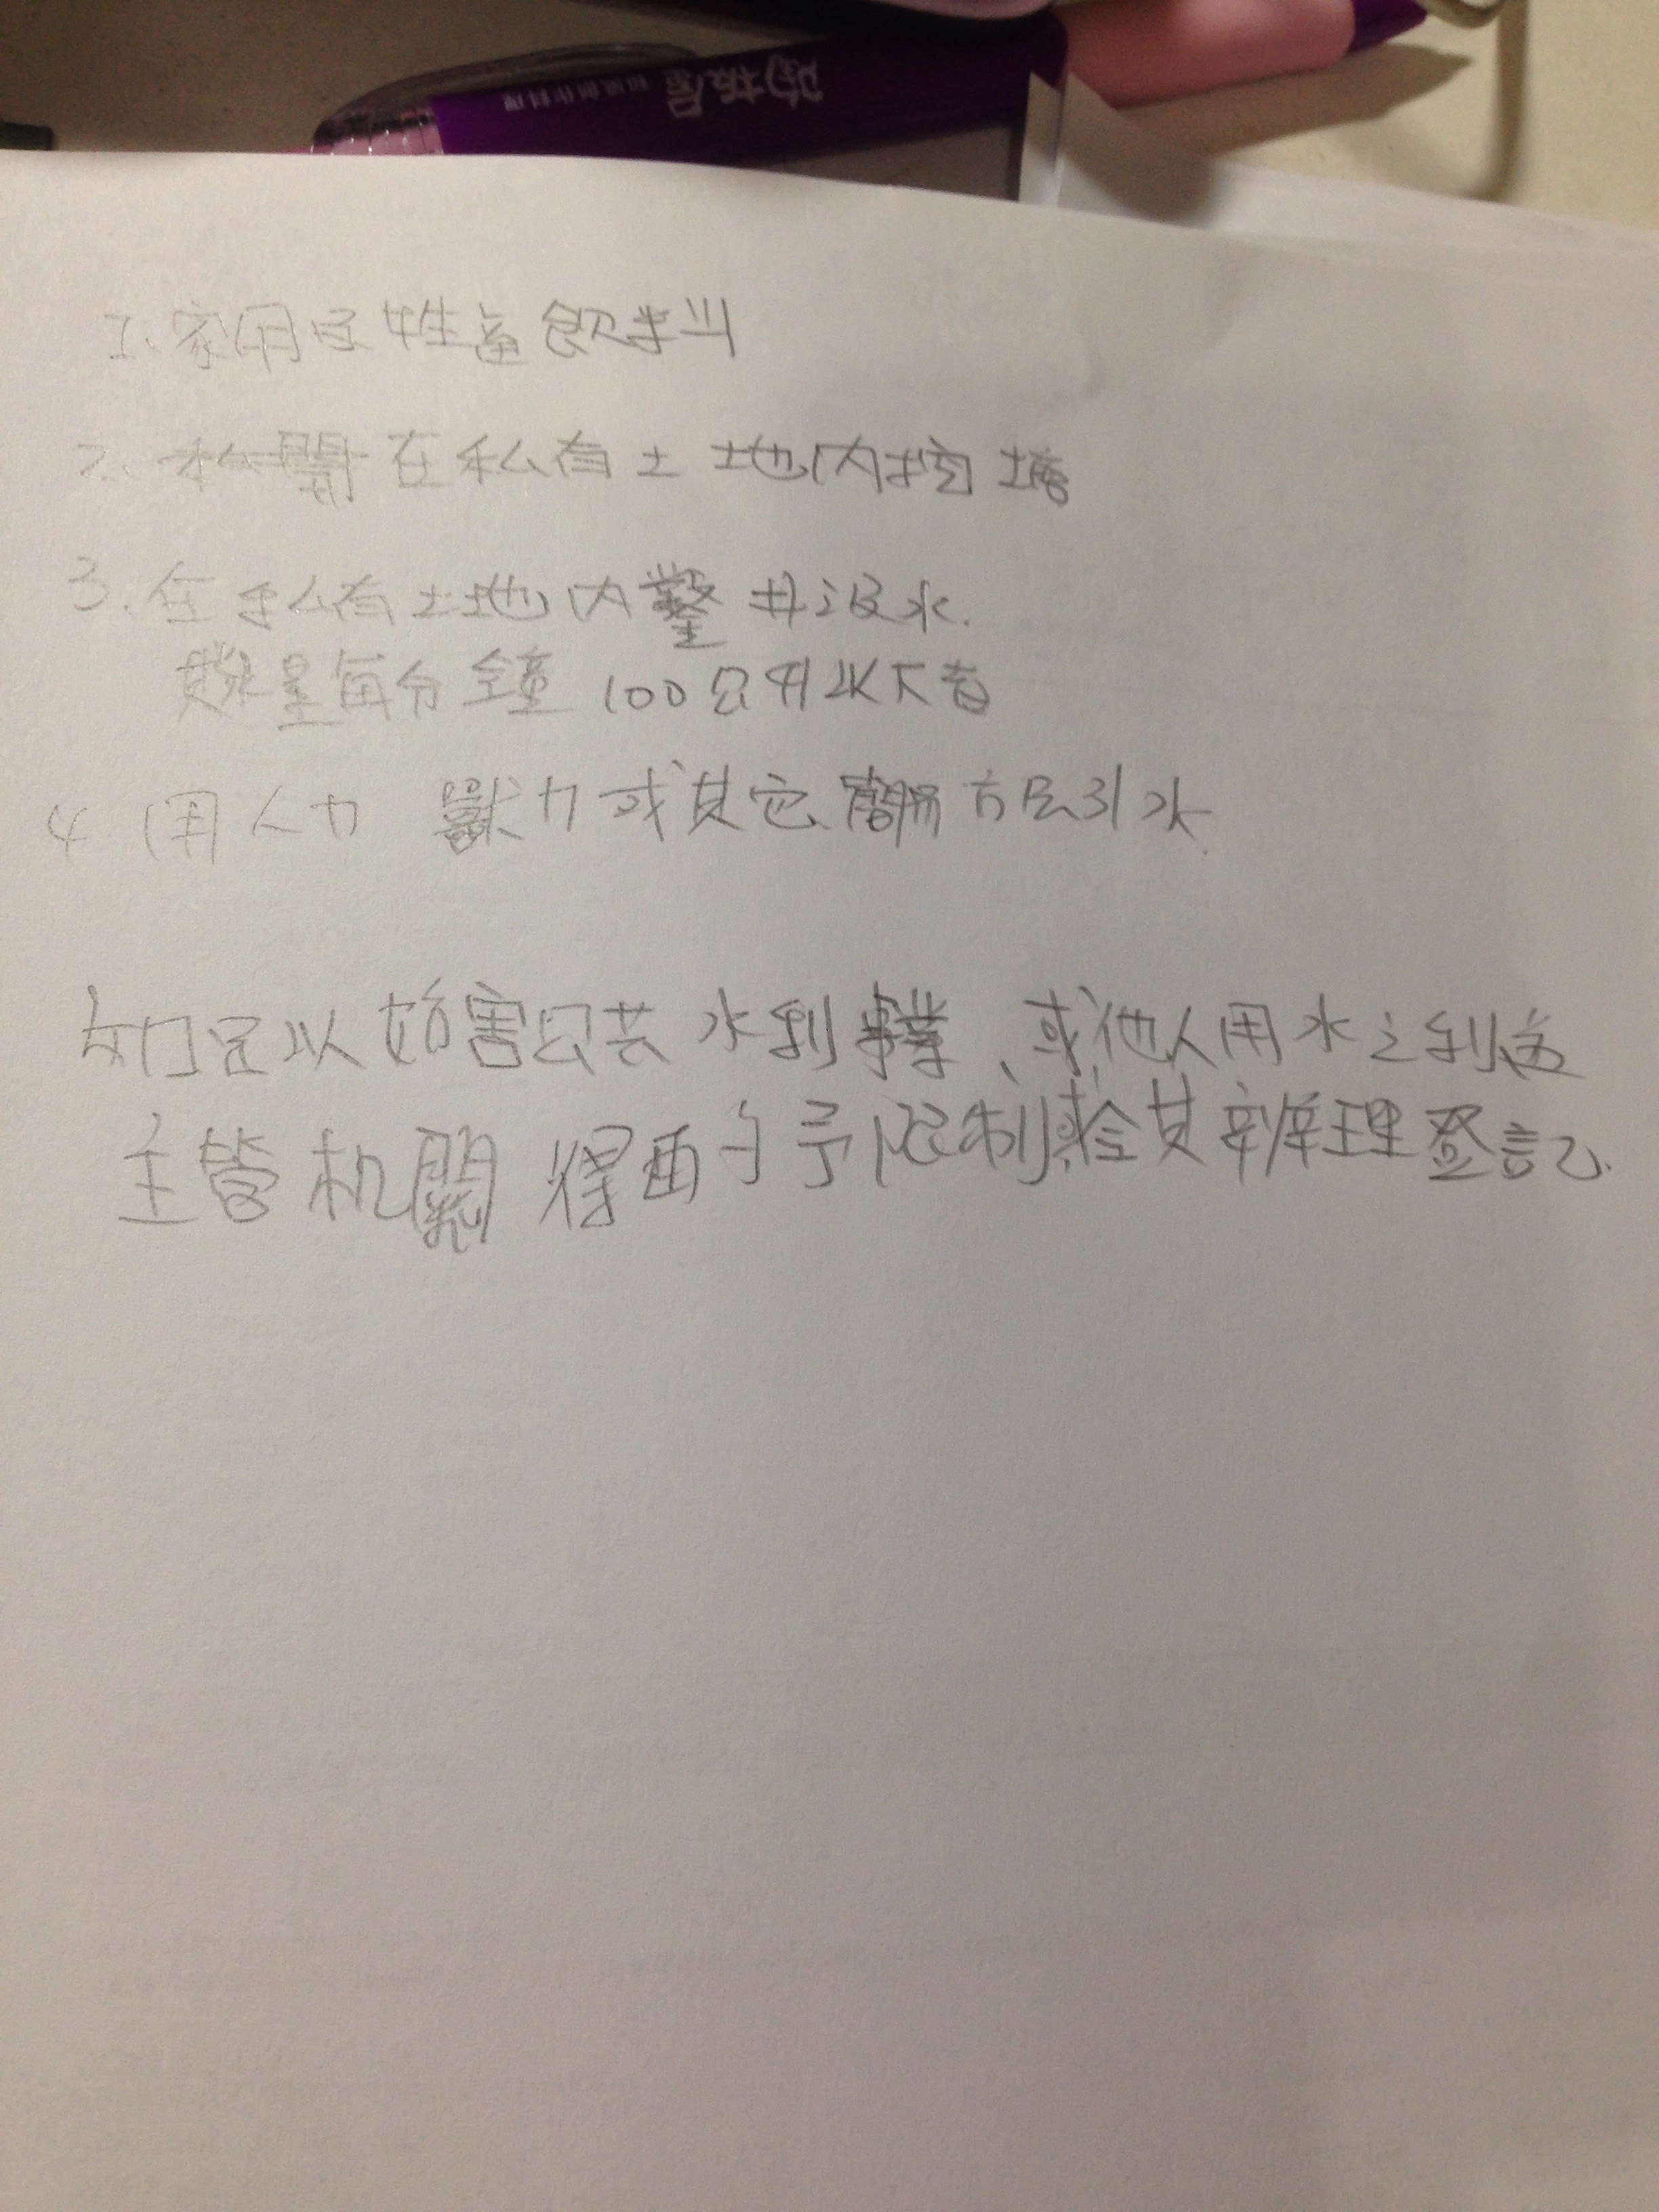 1. 家用及牲畜飲料
2. 私開 在私有土地內挖塘
3. 在私有土地內鑿井汲水.
其水量每分鐘 100公升以下者
4 用人力 獸力或其它簡易方法引水.
如足以妨害公共水利事業、或他人用水之利益
主管机關 得酌予限制或令其辦理登記.